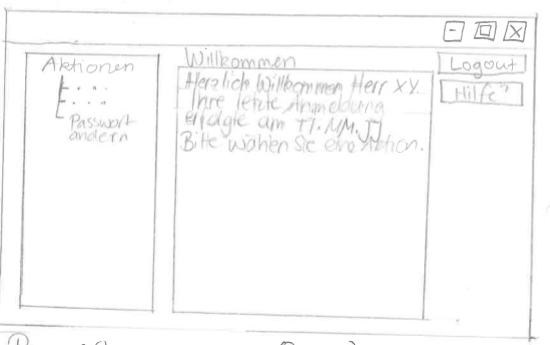 Aktionen
...
...
Passwort
ändern
Willkommen
Herzlich Willkommen Herr XY.
Ihre letzte Anmeldung
erfolgte am TT.MM.JJ
Bitte wählen Sie eine Aktion.
Logout
Hilfe